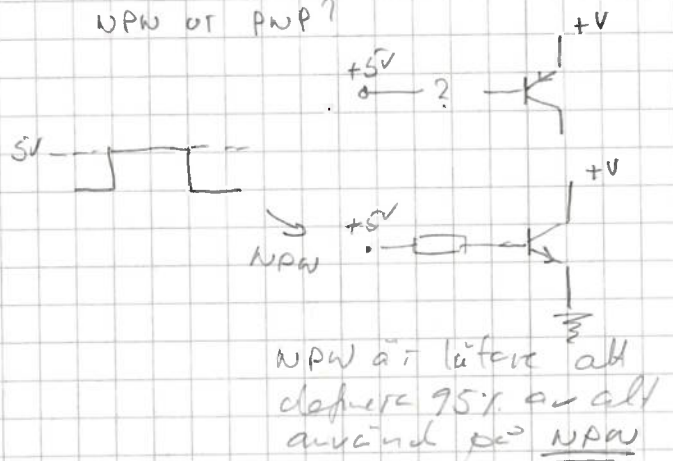 NPN or PNP?
+V
+5V
?
5V
+V
+5V
NPN
NPN är lättare att
definera 95% av allt
använd på NPN